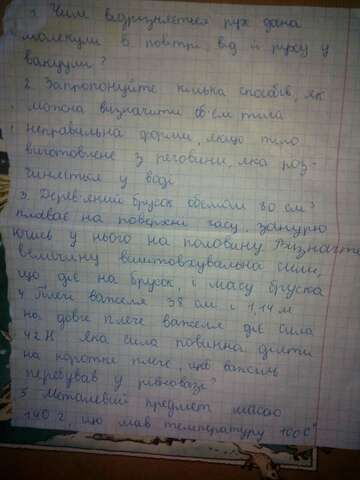 1. Чим відрізняється рух
молекули в повітрі, від її руху у
вакуумі?
2. Запропонуйте кілька способів, як
можна визначити об'єм тіла
неправильна форми, якщо тіло
виготовлене з реговини, яка роз-
чиняється у воді
3. Дерев'яний брусок обсімом 80 см³
плаває на поверхні гасу, занурю
ючись у нього на половину. Визначте
величину виштовхувальна сили,
що діє на брусок, і масу бруска
4. Плечі важеля 38 см і 1,14 м
на довге плече важеля діє сила
42 Н яка сила повинна діяти
на коротке плече, щоб важіль
перебував у рівновазі?
5 Металевий предмет масою
140 г, що мав температуру 100 C°